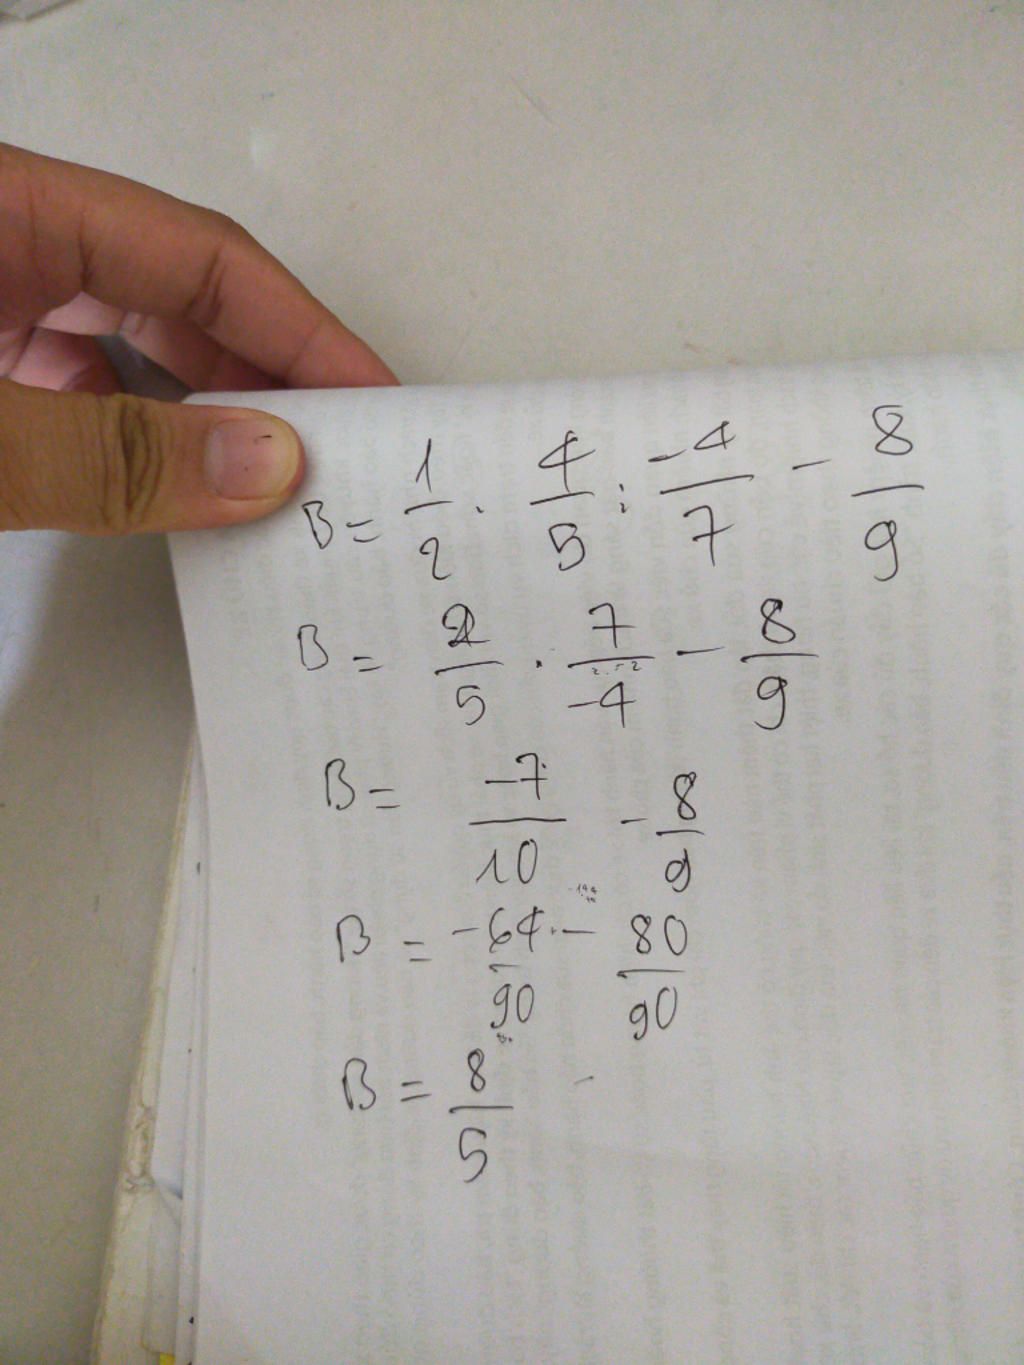 B = 1/2 . 4/5 : -4/7 - 8/9
B = 2/5 . 7/-4 - 8/9
B = -7/10 - 8/9
B = -64/90 - 80/90
B = 8/5